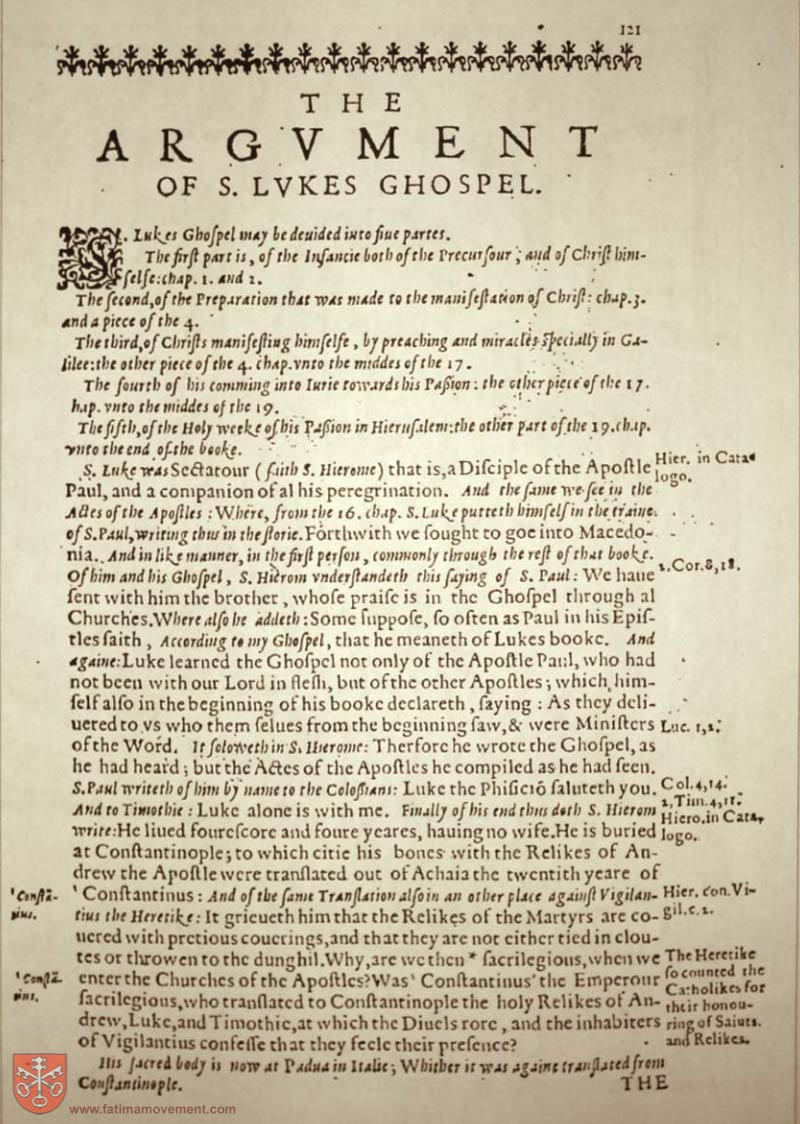 121
THE
ARGVMENT
OF S. LVKES GHOSPEL.
S. Lukes Ghoſpel may be deuided into fiue partes.
The firſt part is, of the Infancie both of the Precurſour; and of Chriſt him-
ſelfe: chap. 1. and 2.
The ſecond, of the Preparation that was made to the manifeſtation of Chriſt: chap. 3.
and a piece of the 4.
The third, of Chriſts manifeſting himſelfe, by preaching and miracles ſpecially in Ga-
lilee: the other piece of the 4. chap. vnto the middes of the 17.
The fourth of his comming into Iurie towards his Paſsion: the other piece of the 17.
hap. vnto the middes of the 19.
The fifth, of the Holy weeke of his Paſsion in Hieruſalem: the other part of the 19. chap.
vnto the end of the booke.
S. Luke was Sectatour (ſaith S. Hierome) that is, a Diſciple of the Apoſtle
Hier. in Cata
logo.
Paul, and a companion of al his peregrination. And the ſame we ſee in the
Actes of the Apoſtles: Where, from the 16. chap. S. Luke putteth himſelf in the traine
of S. Paul, writing thus in the ſtorie. Forthwith we ſought to goe into Macedo-
nia. And in like manner, in the firſt perſon, commonly through the reſt of that booke.
Of him and his Ghoſpel, S. Hierom vnderſtandeth this ſaying of S. Paul: We haue
2. Cor. 8, 18.
ſent with him the brother, whoſe praiſe is in the Ghoſpel through al
Churches. Where alſo he addeth: Some ſuppoſe, ſo often as Paul in his Epiſ-
tles ſaith, According to my Ghoſpel, that he meaneth of Lukes booke. And
againe: Luke learned the Ghoſpel not only of the Apoſtle Paul, who had
not been with our Lord in fleſh, but of the other Apoſtles; which him-
ſelf alſo in the beginning of his booke declareth, ſaying: As they deli-
uered to vs who them ſelues from the beginning ſaw, & were Miniſters
Luc. 1, 2.
of the Word. It foloweth in S. Hierome: Therfore he wrote the Ghoſpel, as
he had heard; but the Actes of the Apoſtles he compiled as he had ſeen.
S. Paul writeth of him by name to the Coloſsians: Luke the Phiſició ſaluteth you.
Col. 4, 14.
And to Timothie: Luke alone is with me. Finally of his end thus doth S. Hierom
2. Tim. 4, 11.
Hiero. in Cata,
logo.
write: He liued foureſcore and foure yeares, hauing no wife. He is buried
at Conſtantinople; to which citie his bones with the Relikes of An-
drew the Apoſtle were tranſlated out of Achaia the twentith yeare of
' Conſtantinus: And of the ſame Tranſlation alſo in an other place againſt Vigilan-
' Conſtā-
tius.
Hier. con. Vi-
gil. c. 2.
tius the Heretike: It grieueth him that the Relikes of the Martyrs are co-
uered with pretious couerings, and that they are not either tied in clou-
tes or throwen to the dunghil. Why, are we then * ſacrilegious, when we
The Heretike
ſo counted the
Catholikes for
their honou-
ring of Saints.
and Relikes.
enter the Churches of the Apoſtles? Was ' Conſtantinus' the Emperour
' Conſtā-
tius.
ſacrilegious, who tranſlated to Conſtantinople the holy Relikes of An-
drew, Luke, and Timothie, at which the Diuels rore, and the inhabiters
of Vigilantius confeſſe that they feele their preſence?
His ſacred body is now at Padua in Italie; Whither it was againe tranſlated from
Conſtantinople.
THE
www.fatimamovement.com